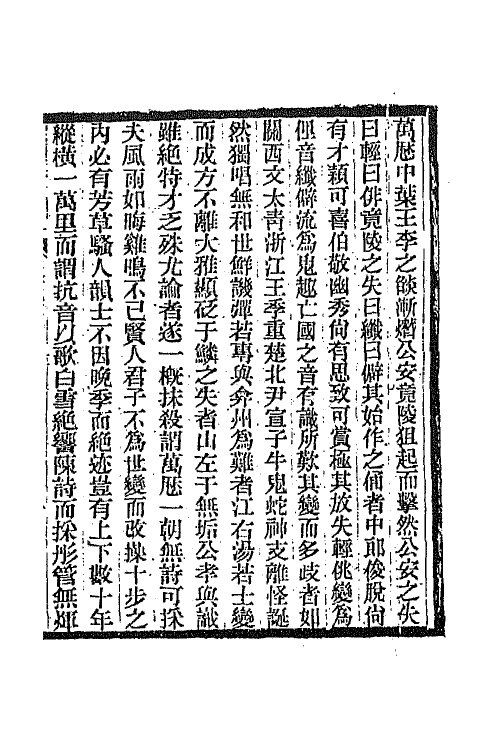 萬厯中葉王李之燄漸熸公安竟陵狙起而擊然公安之失
曰輕曰俳竟陵之失曰纖曰僻其始作之俑者中郎俊脫尙
有才穎可喜伯敬幽秀尙有思致可賞極其放失輕佻變爲
俚音纖僻流爲鬼趣亡國之音有識所歎其變而多歧者如
關西文太靑浙江王季重楚北尹宣子牛鬼蛇神支離怪誕
然獨唱無和世鮮譏彈若專與弇州爲難者江右湯若士變
而成方不離大雅顯砭于鱗之失者山左于無垢公孝與識
雖絶特才乏殊尤論者遂一槪抹殺謂萬厯一朝無詩可採
夫風雨如晦雞鳴不己賢人君子不爲世變而改操十步之
內必有芳草騷人韻士不因晚季而絶迹豈有上下數十年
縱橫一萬里而謂抗音以歌白雪絶響陳詩而採彤管無煇